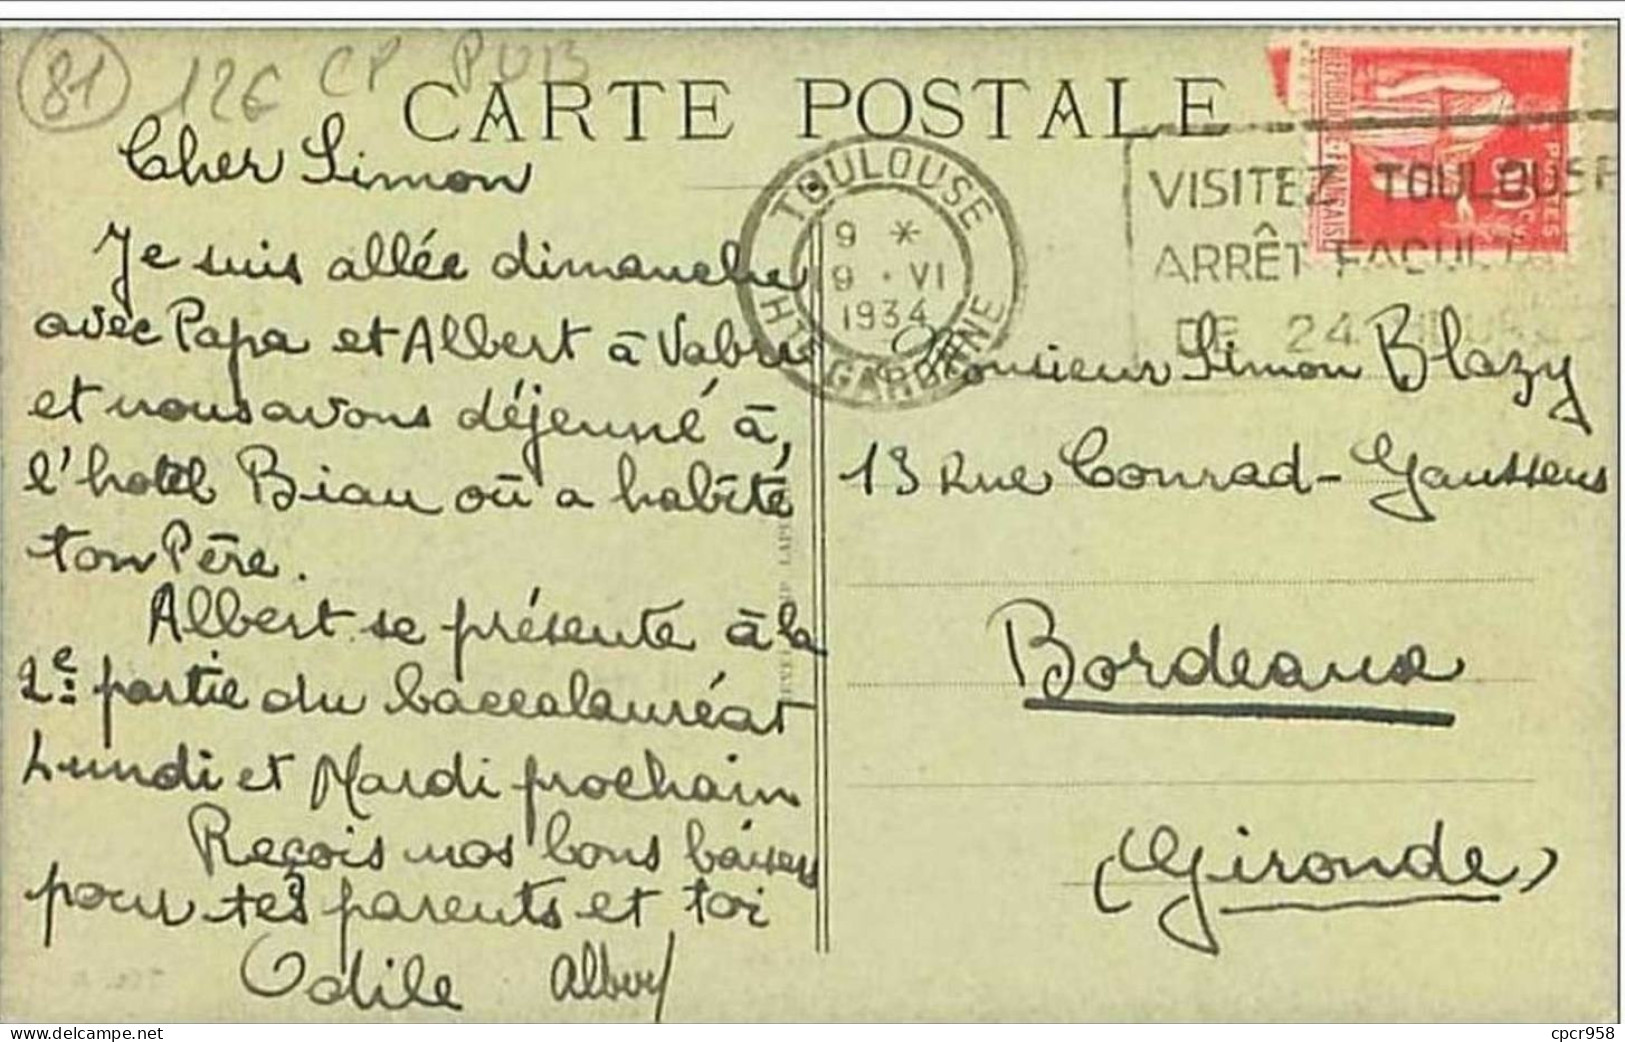 81 12€ CP PUB
CARTE POSTALE
Cher Simon
Je suis allée dimanche
avec Papa et Albert à Vabre
et nous avons déjeuné à
l'hotel Biau où a habité
ton Père.
Albert se présente à la
2e partie du baccalauréat
Lundi et Mardi prochain
Reçois nos bons baisers
pour tes parents et toi
Odile Albert
TOULOUSE
9 *
9 · VI
1934
HTE GARONNE
VISITEZ TOULOUSE
ARRÊT FACULTA
DE 24 HEURES
REPUBLIQUE FRANÇAISE
POSTES
Monsieur Simon Blazy
13 Rue Conrad-Gaussens
Bordeaux
(Gironde)
cpcr958